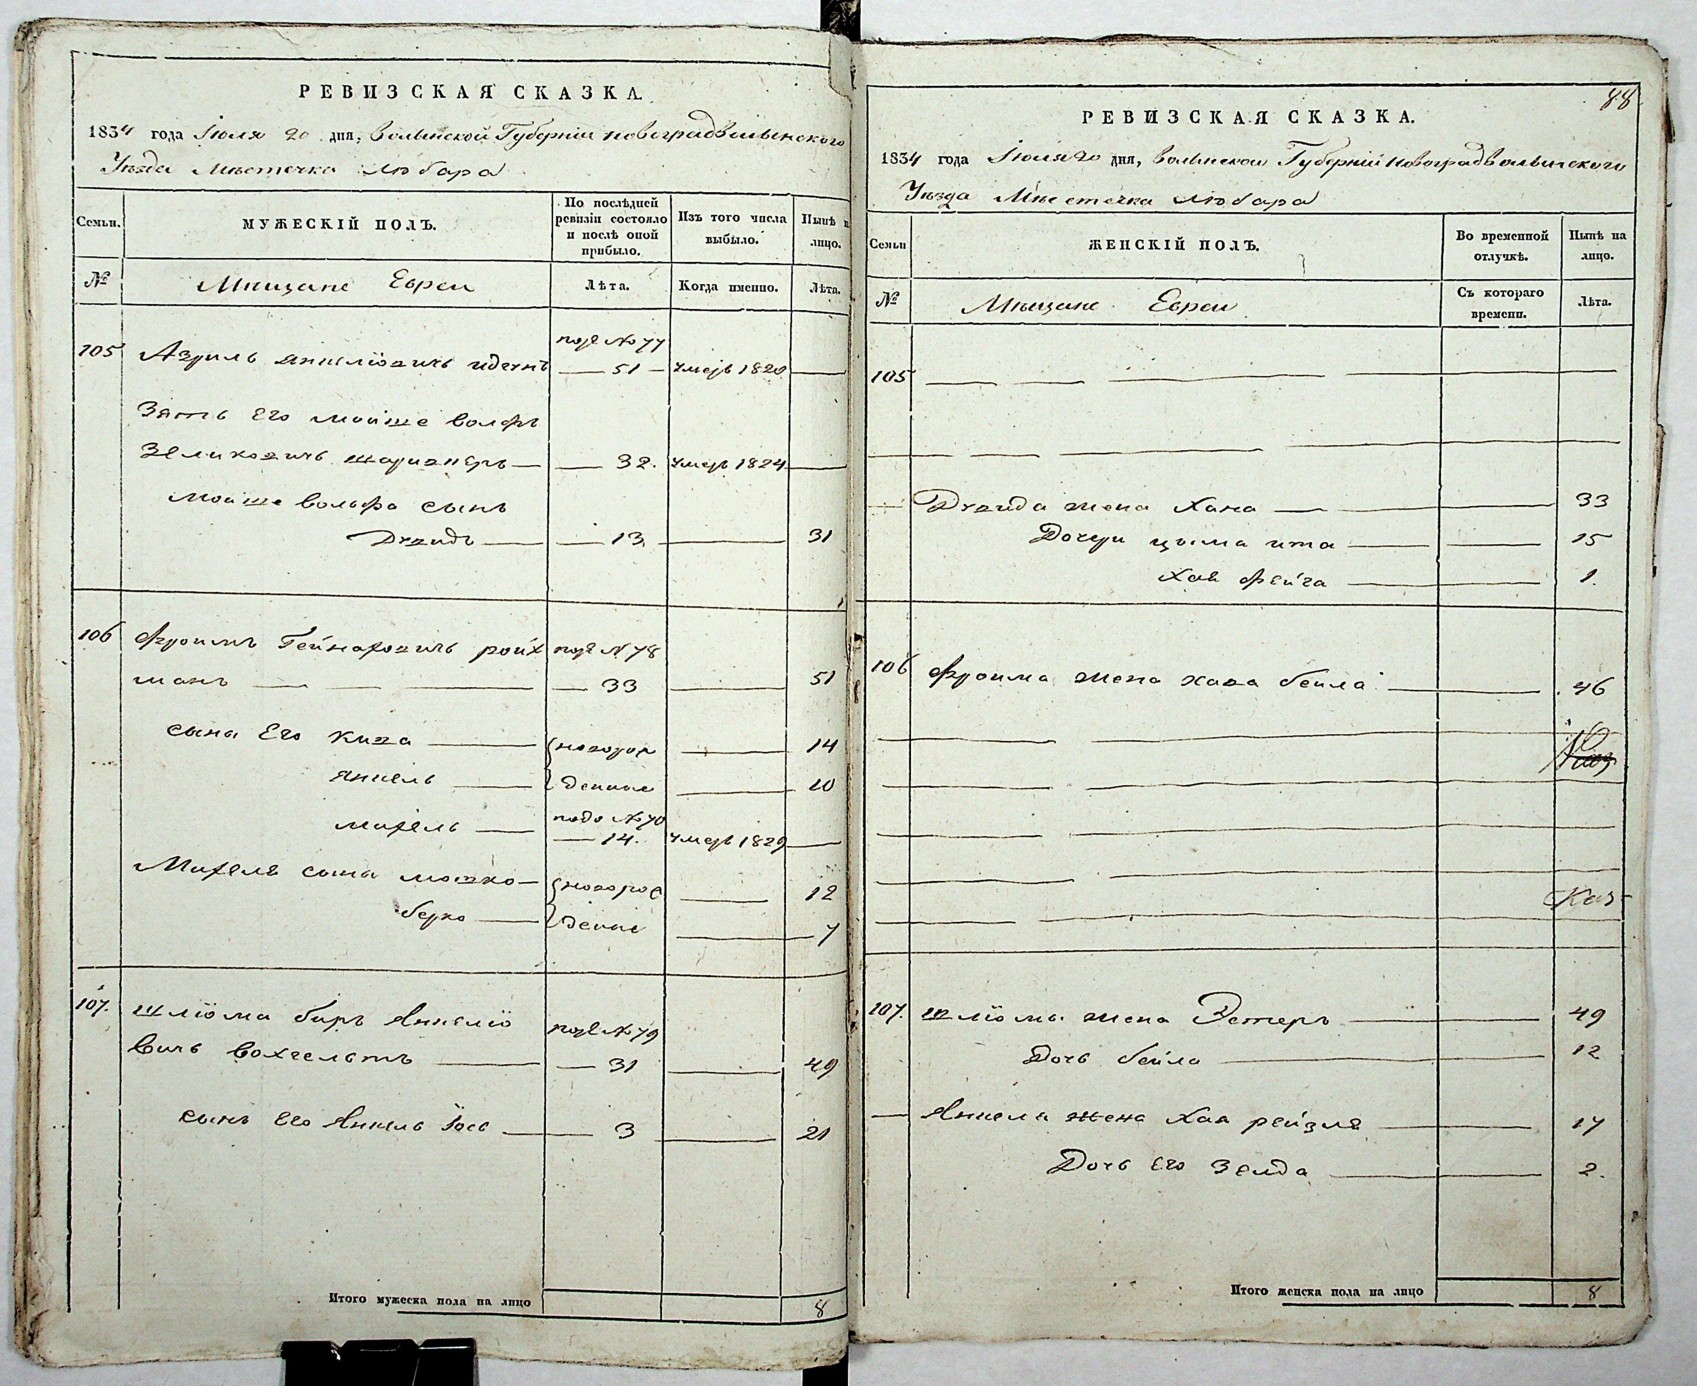 РЕВИЗСКАЯ СКАЗКА.
1834 года Іюля 20 дня, Волынской Губерніи Новоградволынского
Уезда Местечка Любара
Семьи.
МУЖЕСКІЙ ПОЛЪ.
По послѣдней ревизіи состояло и послѣ оной прибыло.
Изъ того числа выбыло.
Нынѣ н лицо.
№
Мещане Евреи
Лѣта.
Когда именно.
Лѣта.
105
подъ № 77
Азриль Янкліовичъ
51
умеръ 1820
Зять Его Мойше Волфъ
Зелиховичъ
32.
умеръ 1824
Мойше Волфа сынъ
Двидъ
13
31
106 Фроимъ Гейнаховичъ ройх
подъ № 78
манъ
33
51
сына Его Кива
новорож
14
Янкель
денные
10
подъ № 70
Михель
14.
умеръ 1829
Михеля сына Мошко
новорож
12
берко
денные
7
107.
Шліома биръ Янкеліо
подъ № 79
вичъ
31
49
сынъ Его Янкель Іось
3
21
Итого мужеска пола на лицо
8
88
РЕВИЗСКАЯ СКАЗКА.
1834 года Іюля 20 дня, Волынской Губерніи Новоградволынского
Уезда Местечка Любара
Семьи
ЖЕНСКІЙ ПОЛЪ.
Во временной отлучкѣ.
Нынѣ на лицо.
№
Мещане Евреи
Съ котораго времени.
Лѣта.
105
Двида жена Хана
33
Дочери цыма ита
15
Хая фейга
1.
106 Фроима жена хава бейла
46
Каз
107. Шліомы жена Эстеръ
49
Дочь бейла
12
Янкела жена Хая рейзля
17
Дочь Его Зелда
2.
Итого женска пола на лицо
8